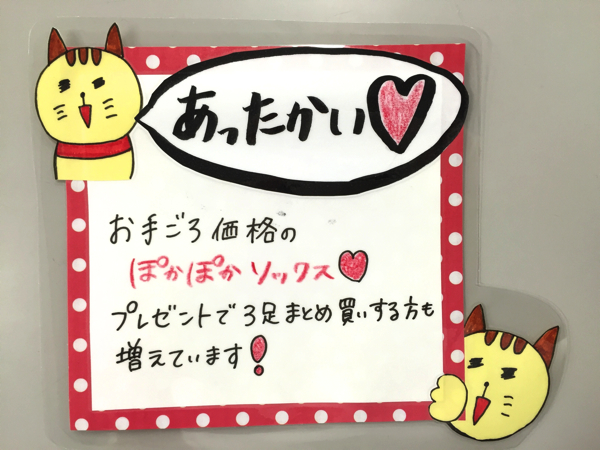 あったかい♥
お手ごろ価格の
ぽかぽかソックス♥
プレゼントで3足まとめ買いする方も
増えています!